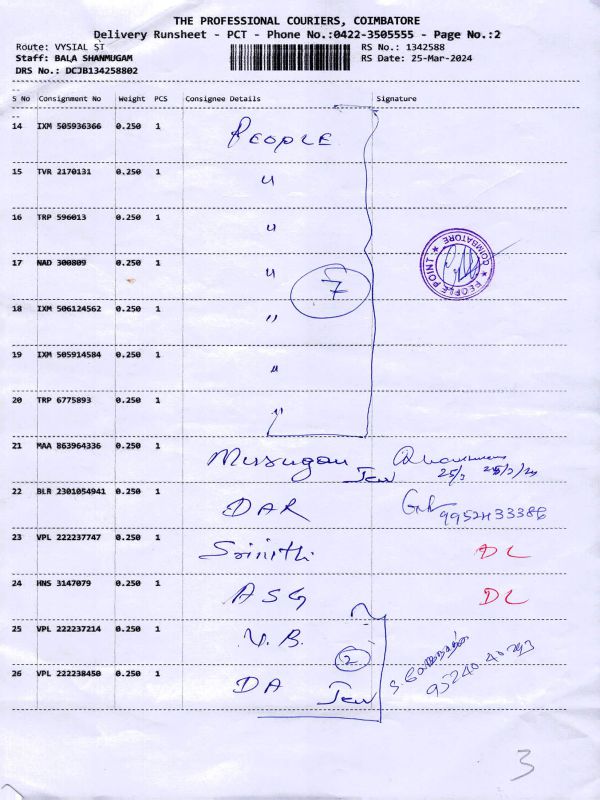 THE PROFESSIONAL COURIERS, COIMBATORE
Delivery Runsheet - PCT - Phone No.:0422-3505555 - Page No.:2
Route: VYSIAL ST
RS No.: 1342588
Staff: BALA SHANMUGAM
RS Date: 25-Mar-2024
DRS No.: DCJB134258802
S No Consignment No Weight PCS Consignee Details Signature
14 IXM 505936366 0.250 1 PEOPLE
15 TVR 2170131 0.250 1 "
16 TRP 596013 0.250 1 "
17 NAD 300809 0.250 1 "
7
PEOPLE POINT * COIMBATORE *
18 IXM 506124562 0.250 1 "
19 IXM 505914584 0.250 1 "
20 TRP 6775893 0.250 1 "
21 MAA 863964336 0.250 1 Murugan Jew 25/3
22 BLR 2301054941 0.250 1 DAR
23 VPL 222237747 0.250 1 Srinithi DL
24 HNS 3147079 0.250 1 ASG DL
25 VPL 222237214 0.250 1 V.B.
2
26 VPL 222238450 0.250 1 DA Jew
3